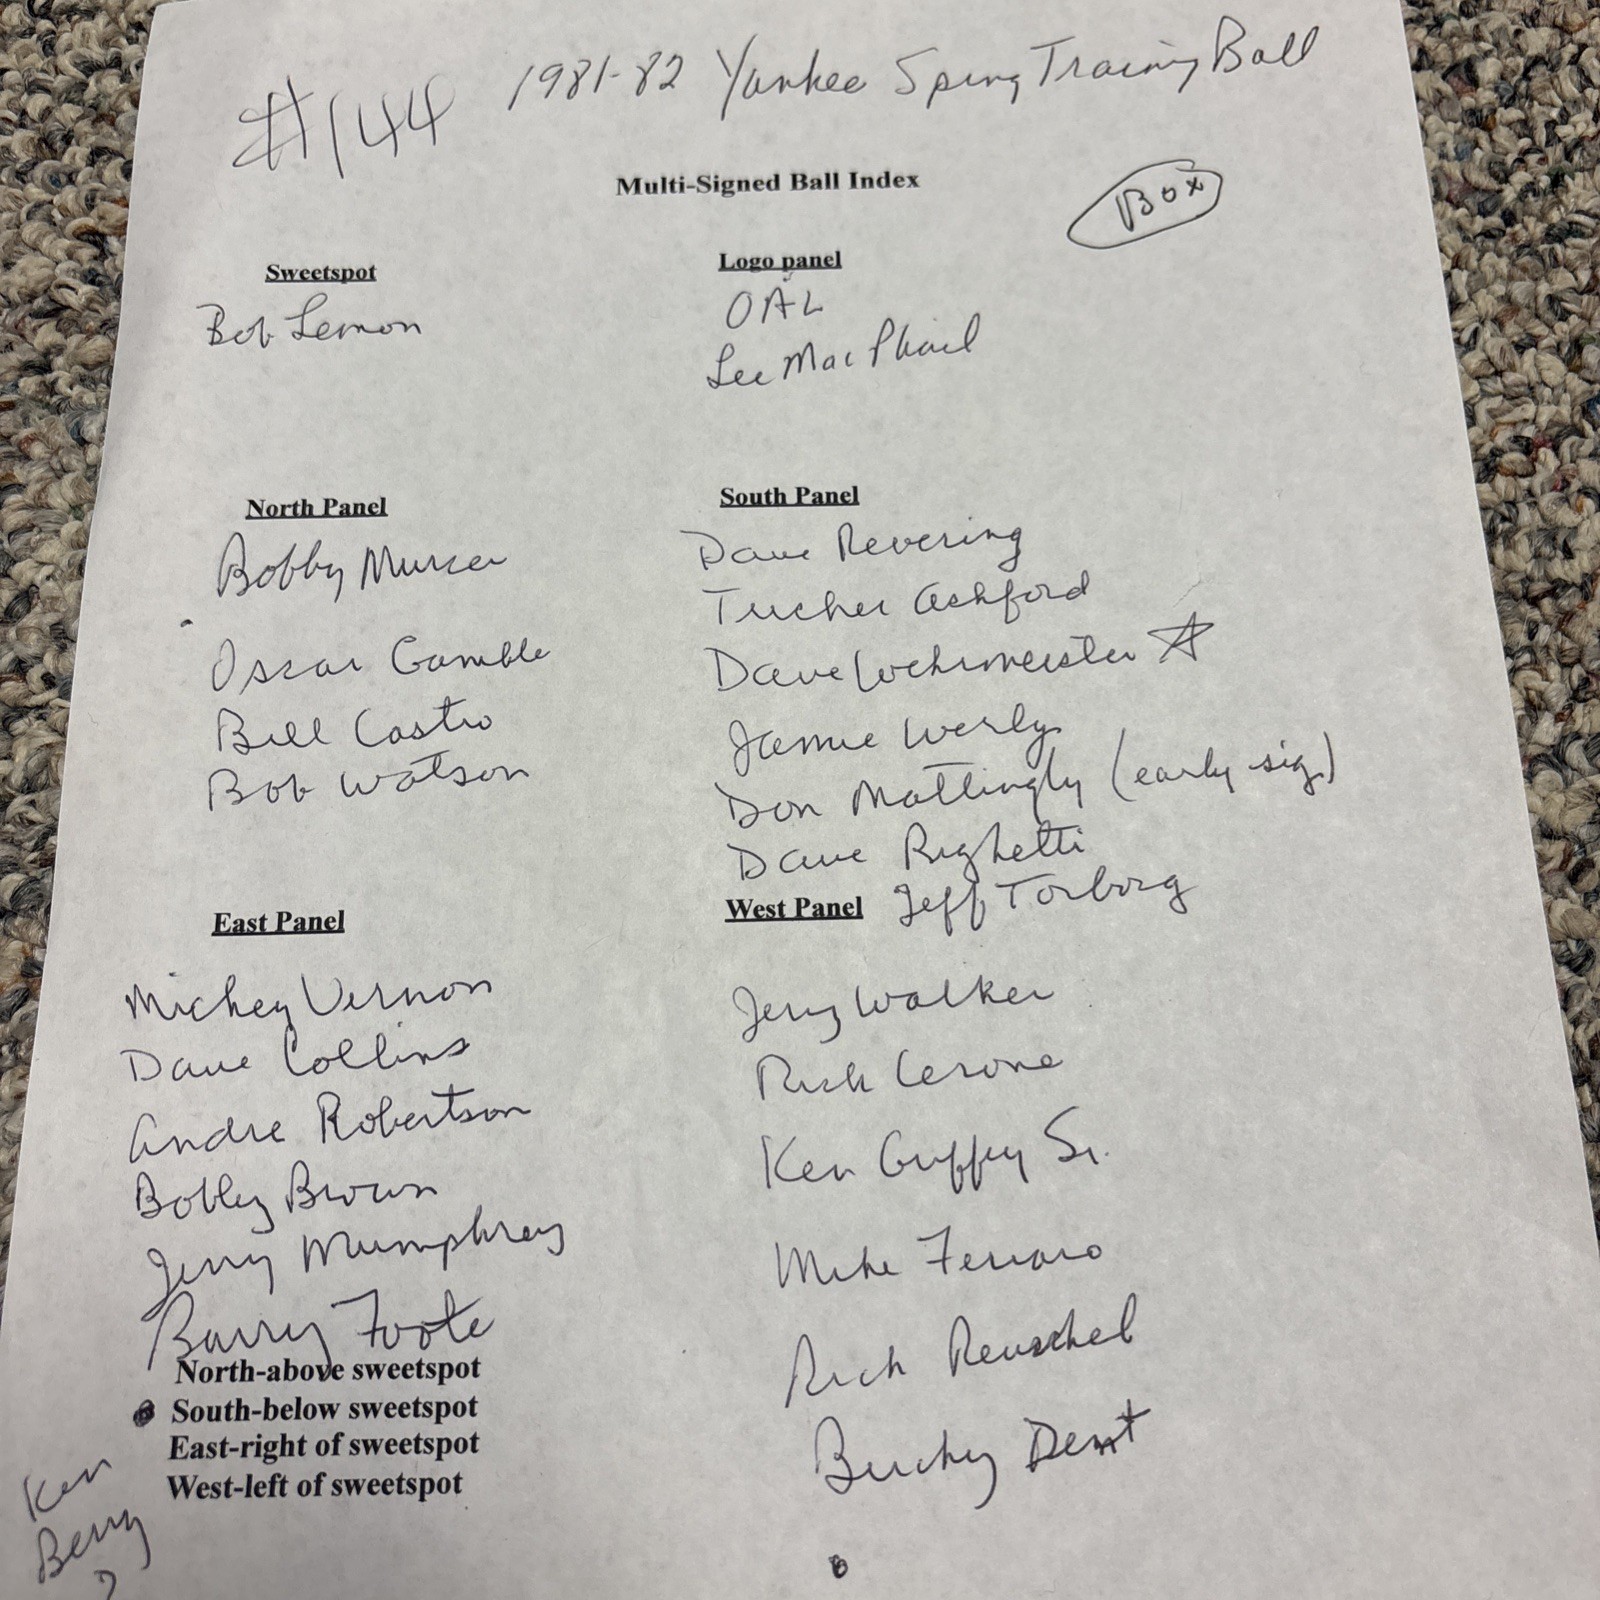 #144 1981-82 Yankee Spring Training Ball
Multi-Signed Ball Index
Box
Sweetspot
Bob Lemon
Logo panel
OAL
Lee MacPhail
North Panel
Bobby Murcer
Oscar Gamble
Bill Castro
Bob Watson
South Panel
Dave Revering
Tucker Ashford
Dave Wehrmeister ☆
Jamie Werly
Don Mattingly (early sig.)
Dave Righetti
Jeff Torborg
East Panel
Mickey Vernon
Dave Collins
Andre Robertson
Bobby Brown
Jerry Mumphrey
Barry Foote
West Panel
Jerry Walker
Rick Cerone
Ken Griffey Sr.
Mike Ferraro
Rick Reuschel
Bucky Dent
North-above sweetspot
South-below sweetspot
East-right of sweetspot
West-left of sweetspot
Ken
Berry
?